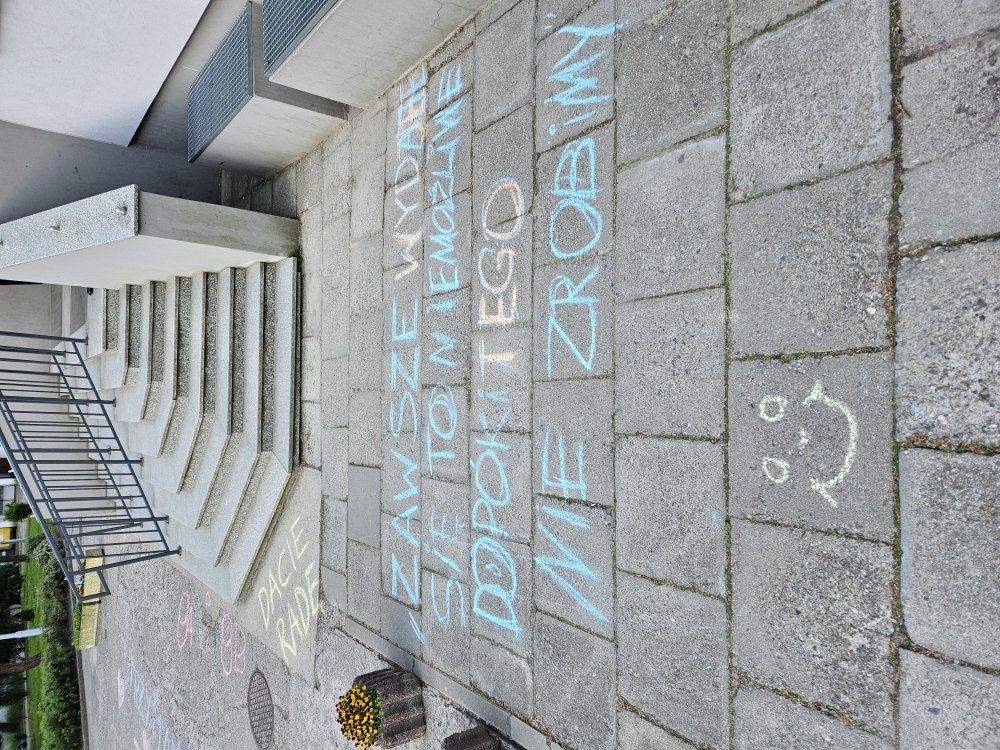 "ZAWSZE WYDAJE
SIĘ TO NIEMOŻLIWE
DOPÓKI TEGO
NIE ZROBIMY"
DACIE
RADĘ